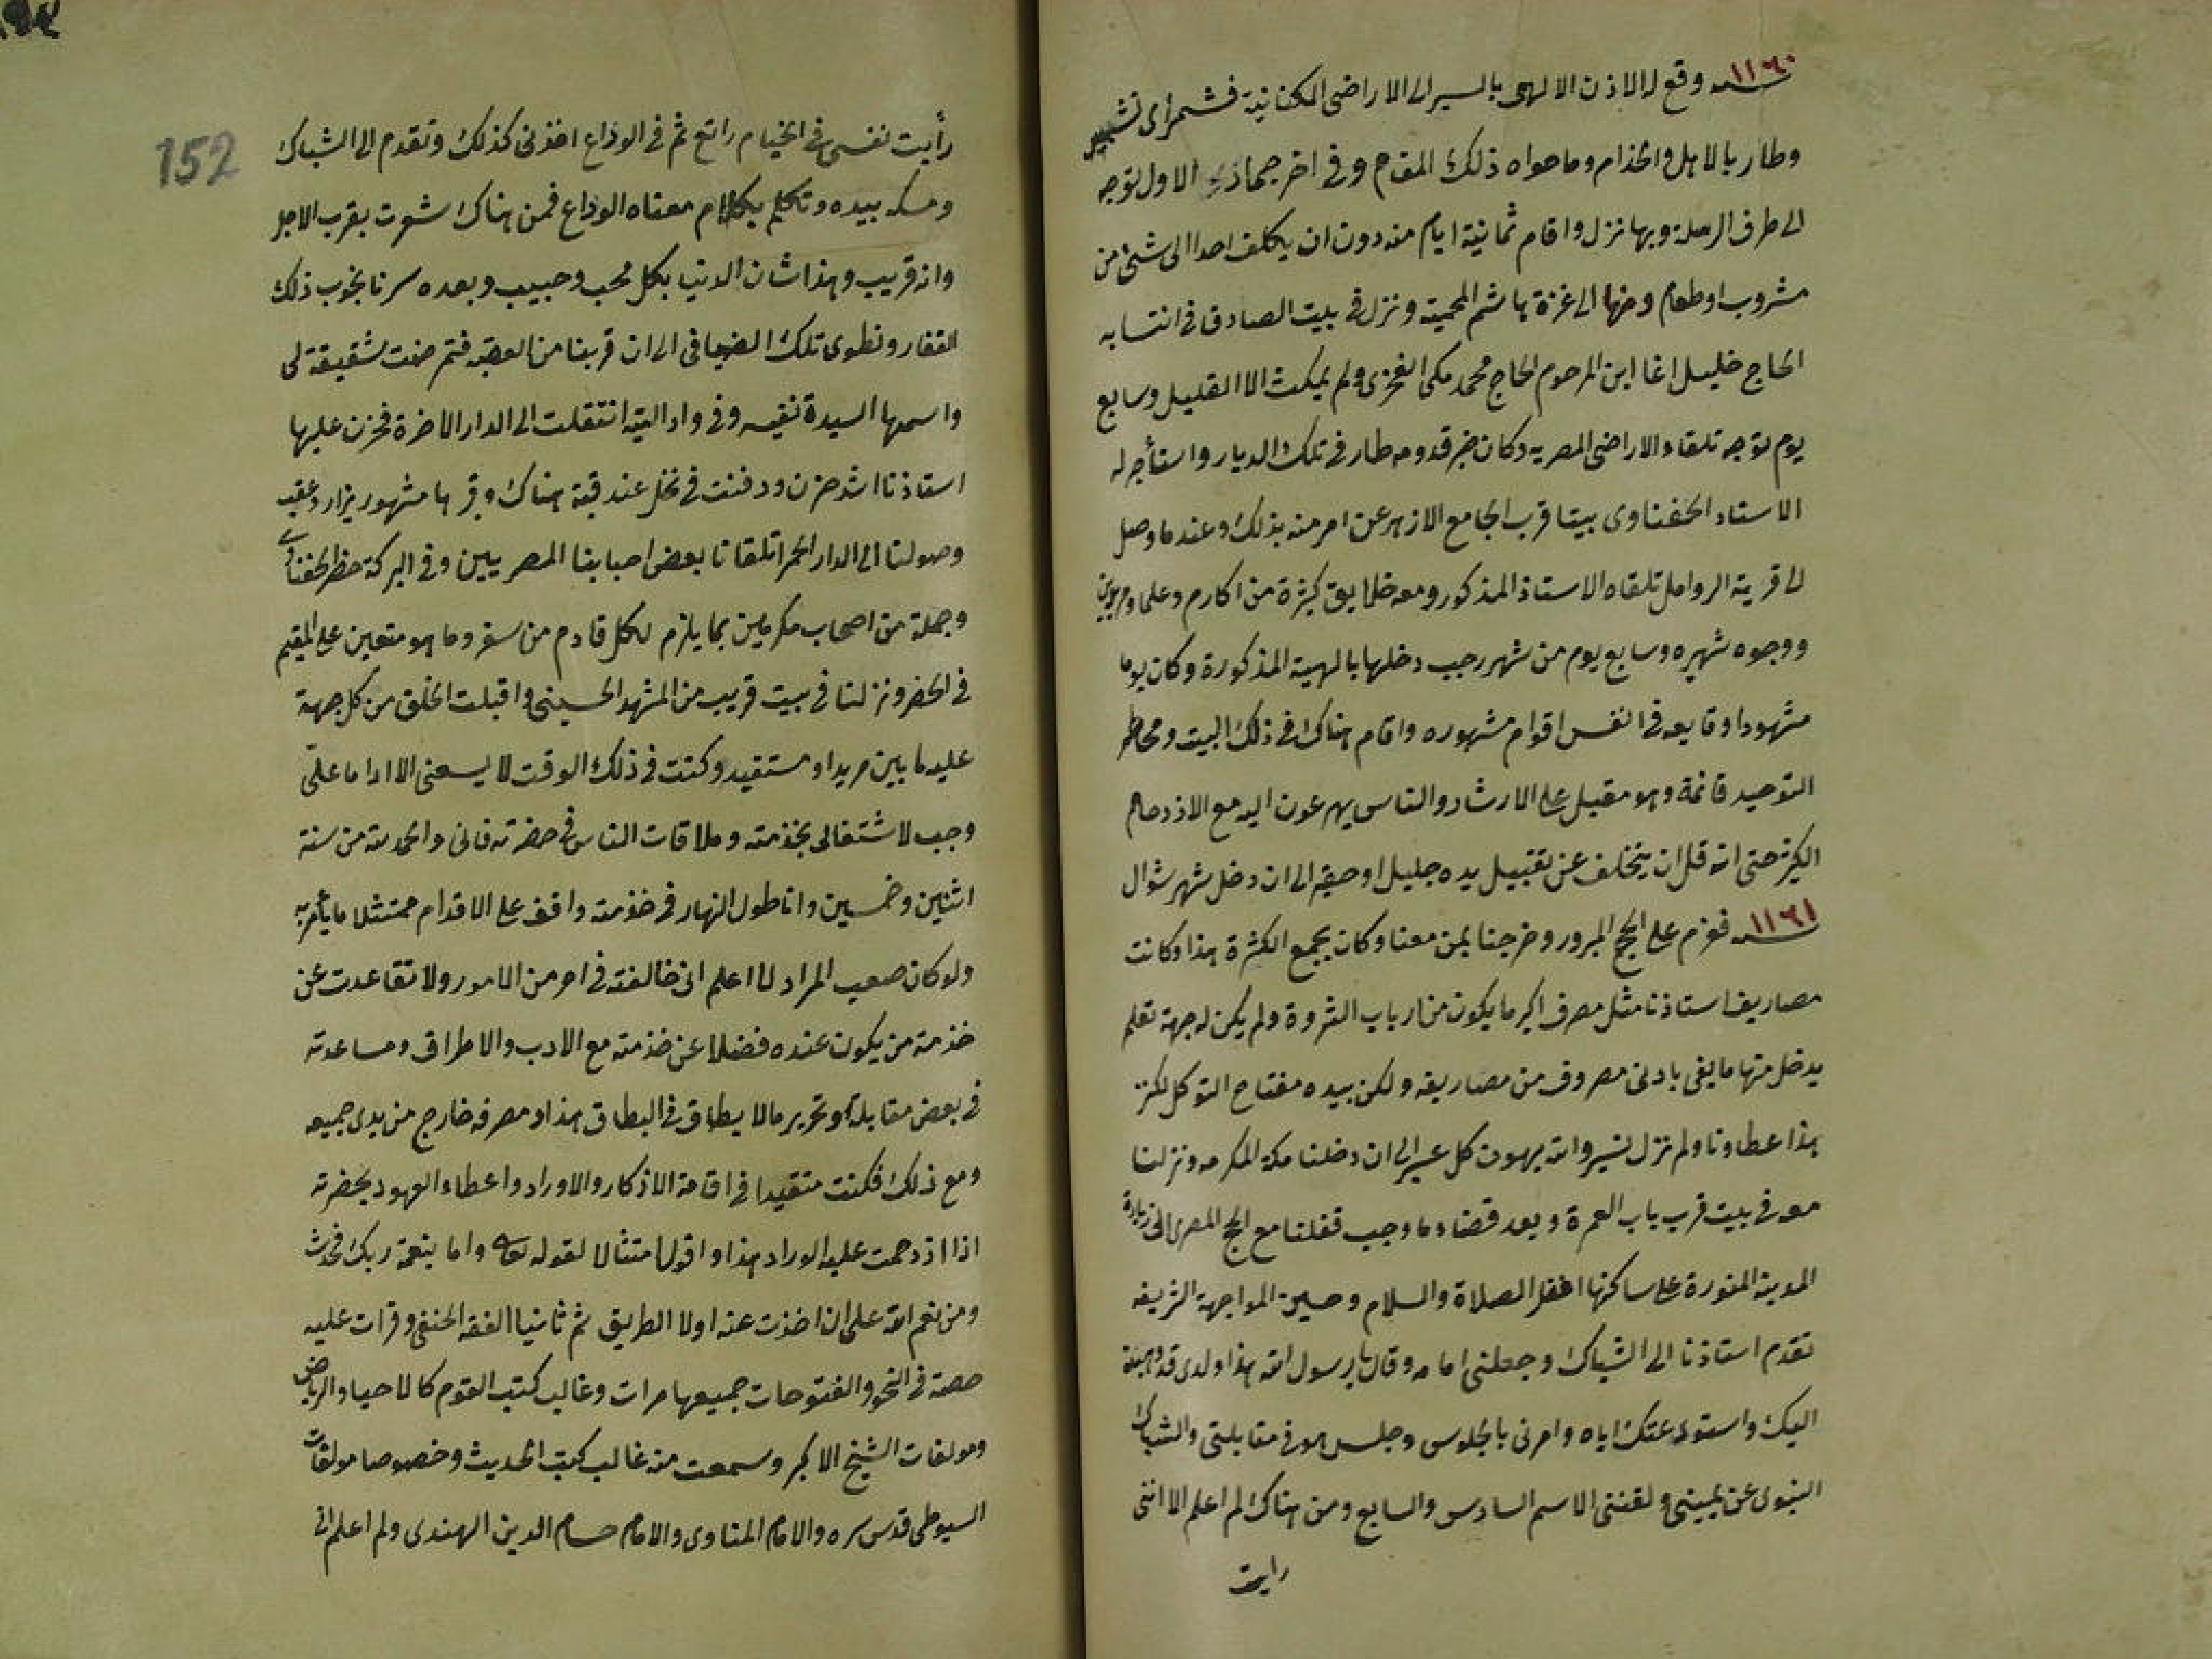 ١١٦٠ وقع له الاذن الالهى بالسير الى الاراضى الكنانية فشمر اى تشمير
وطار بالاهل والخدام وما حواه ذلك المقام وفى اخر جمادى الاول توجه
الى طرف الرملة وبها نزل واقام ثمانية ايام من دون ان يكلف احدا الى شئ من
مشروب او طعام ومنها الى غزة هاشم المحمية ونزل فى بيت الصادق فى انتسابه
الحاج خليل اغا ابن المرحوم الحاج محمد مكى الغزى ولم يمكث الا القليل وسابع
يوم توجه تلقاء الاراضى المصريه وكان خبر قدومه طار فى تلك الديار واستأجر له
الاستاد الحفناوى بيتا قرب الجامع الازهر عن امر منه بذلك وعندما وصل
الى قرية الروامل تلقاه الاستاذ المذكور ومعه خلايق كثيرة من اكارم وعلما ومريدين
ووجوه شهيره وسابع يوم من شهر رجب دخلها بالهيبة المذكورة وكان يوما
مشهودا وقايعه فى انفس اقوام مشهوره واقام هناك فى ذلك البيت ومحاضر
التوحيد قائمة وهو مقبل على الارشاد والناس يهرعون اليه مع الازدحام
الكبير حتى انه قل ان يتخلف عن تقبيل يده جليل او حقير الى ان دخل شهر شوال
١١٦١ فعزم على الحج المبرور وخرجنا بمن معنا وكان بجمع الكثرة هذا وكانت
مصاريف استاذنا مثل مصرف اكبر ما يكون من ارباب الثروة ولم يكن له جهة تعلم
يدخل منها ما يفى بادنى مصروف من مصاريفه ولكن بيده مفتاح التوكل لكنز
هذا عطاونا ولم نزل نسير والله يهون كل عسير الى ان دخلنا مكة المكرمه ونزلنا
معه فى بيت قرب باب العمرة وبعد قضاء ما وجب قفلنا مع الحج المصرى الى زيارة
المدينة المنورة على ساكنها افضل الصلاة والسلام وحين المواجهة الشريفه
تقدم استاذنا الى الشباك وجعلنى امامه وقال يا رسول الله هذا ولدى قد وهبته
اليك واستودعتك اياه وامرنى بالجلوس وجلس هو فى مقابلتى والشباك
النبوى عن يمينى ولقننى الاسم السادس والسابع ومن هناك لم اعلم الا اننى
رايت
152
رأيت نفسى فى الخيام راتع ثم فى الوداع اخذنى كذلك وتقدم الى الشباك
ومسكه بيده وتكلم بكلام معناه الوداع فمن هناك شعرت بقرب الاجل
وانه قريب وهذا شان الدنيا بكل محب وحبيب وبعده سرنا نجوب ذلك
القفار ونطوى تلك الفيافى الى ان قربنا من العقبه فتمرضت شقيقة لى
واسمها السيدة نفيسه وفى واد التيه انتقلت الى الدار الاخرة فحزن عليها
استاذنا اشد حزن ودفنت فى نخل عند قبة هناك وقبرها مشهور يزار وعقب
وصولنا الى الدار الحمرا تلقانا بعض احبابنا المصريين وفى البركة حضر الحفناوى
وجملة من اصحاب مكرمين بما يلزم لكل قادم من سفر وما هو متعين على المقيم
فى الحضر ونزلنا فى بيت قريب من المشهد الحسينى واقبلت الخلق من كل جهة
عليه ما بين مريد او مستفيد وكنت فى ذلك الوقت لا يسعنى الا ادا ما علىّ
وجب لاشتغالى بخدمته وملاقات الناس فى حضرته فانى والحمد لله من سنة
اثنين وخمسين وانا طول النهار فى خذمته واقف على الاقدام ممتثلا ما يأمر به
ولو كان صعب المراد لا اعلم انى خالفته فى امر من الامور ولا تقاعدت عن
خذمة من يكون عنده فضلا عن خذمته مع الادب والاطراق ومساعدته
فى بعض مقابلة وتحرير ما لا يطاق فى البطاق هذا ومصرفه خارج من يدى جميعه
ومع ذلك فكنت متقيدا فى اقامة الاذكار والاوراد واعطاء العهود بحضرته
اذا ازدحمت عليه الوراد هذا واقول امتثالا لقوله تعالى واما بنعمة ربك فحدث
ومن نعم الله على ان اخذت عنه اولا الطريق ثم ثانيا الفقه الحنفى وقرات عليه
حصة فى النحو والفتوحات جميعها مرات وغالب كتب القوم كالاحيا والرياض
ومولفات الشيخ الاكبر وسمعت منه غالب كتب الحديث وخصوصا مولفات
السيوطى قدس سره والامام المناوى والامام حسام الدين الهندى ولم اعلم انى